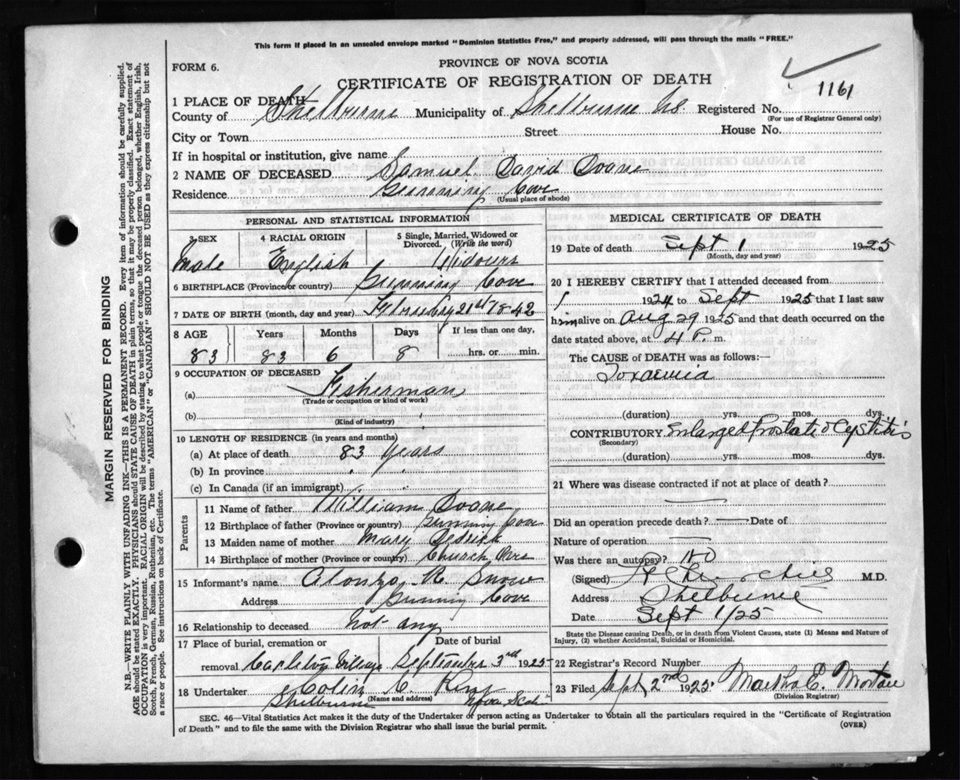 This form if placed in an unsealed envelope marked "Dominion Statistics Free," and properly addressed, will pass through the mails "FREE."
FORM 6.
PROVINCE OF NOVA SCOTIA
CERTIFICATE OF REGISTRATION OF DEATH
1161
1 PLACE OF DEATH
County of Shelburne Municipality of Shelburne NS. Registered No.
(For use of Registrar General only)
City or Town Street House No.
If in hospital or institution, give name
2 NAME OF DECEASED Samuel David Doane
Residence Gunning Cove
(Usual place of abode)
PERSONAL AND STATISTICAL INFORMATION
3 SEX 4 RACIAL ORIGIN 5 Single, Married, Widowed or Divorced. (Write the word)
Male English Widower
6 BIRTHPLACE (Province or country) Gunning Cove
7 DATE OF BIRTH (month, day and year) February 21st 1842
8 AGE Years Months Days If less than one day,
83 83 6 8 hrs. or min.
9 OCCUPATION OF DECEASED
(a) Fisherman
(Trade or occupation or kind of work)
(b)
(Kind of industry)
10 LENGTH OF RESIDENCE (in years and months)
(a) At place of death 83 years
(b) In province
(c) In Canada (if an immigrant)
Parents
11 Name of father William Doane
12 Birthplace of father (Province or country) Gunning Cove
13 Maiden name of mother Mary
14 Birthplace of mother (Province or country) Church Over
15 Informant's name Alonzo R. Snow
Address Gunning Cove
16 Relationship to deceased not any
17 Place of burial, cremation or removal Date of burial
Carleton Village September 3rd 1925
18 Undertaker Colin C. King
(Name and address)
Shelburne Nova Scotia
MEDICAL CERTIFICATE OF DEATH
19 Date of death Sept 1 1925
(Month, day and year)
20 I HEREBY CERTIFY that I attended deceased from
1924 to Sept 1925 that I last saw
him alive on Aug 29 1925 and that death occurred on the
date stated above, at 4 P. m.
The CAUSE of DEATH was as follows:—
Toxaemia
(duration) yrs. mos. dys.
CONTRIBUTORY Enlarged Prostate & Cystitis
(Secondary)
(duration) yrs. mos. dys.
21 Where was disease contracted if not at place of death?
Did an operation precede death? — Date of
Nature of operation —
Was there an autopsy? No
(Signed) M.D.
Address Shelburne
Date Sept 1/25
State the Disease causing Death, or in death from Violent Causes, state (1) Means and Nature of Injury, (2) whether Accidental, Suicidal or Homicidal.
22 Registrar's Record Number
23 Filed Sept 2nd 1925 Martha C.
(Division Registrar)
SEC. 46—Vital Statistics Act makes it the duty of the Undertaker or person acting as Undertaker to obtain all the particulars required in the "Certificate of Registration
of Death" and to file the same with the Division Registrar who shall issue the burial permit. (OVER)
MARGIN RESERVED FOR BINDING
N.B.—WRITE PLAINLY WITH UNFADING INK—THIS IS A PERMANENT RECORD. Every item of information should be carefully supplied.
AGE should be stated EXACTLY. PHYSICIANS should STATE CAUSE OF DEATH in plain terms, so that it may be properly classified. Exact statement of
OCCUPATION is very important. RACIAL ORIGIN will be described by stating to what people or tongue the deceased person belonged, whether English, Irish,
Scotch, French, German, Russian, Ruthenian, etc. The terms "AMERICAN" or "CANADIAN" SHOULD NOT BE USED as they express citizenship but not
a race or people. See instructions on back of Certificate.